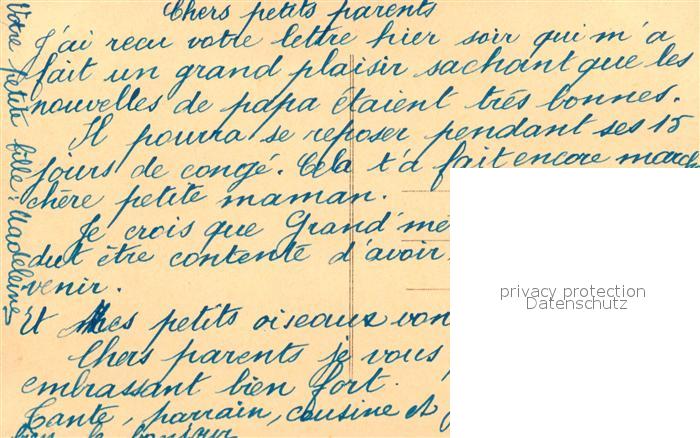 Chers petits parents
J'ai recu votre lettre hier soir qui m'a
fait un grand plaisir sachant que les
nouvelles de papa étaient très bonnes.
Il pourra se reposer pendant ses 15
jours de congé. Cela t'a fait encore march
chère petite maman.
Je crois que Grand'mè
dut être contente d'avoir
venir.
Et mes petits oiseaux von
Chers parents je vous
embrassant bien fort.
Tante, parrain, cousine et
bien le bonjour
Votre petite fille: Madeleine
privacy protection
Datenschutz